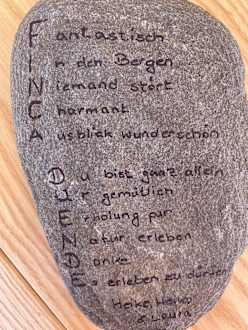 Fantastisch
In den Bergen
Niemand stört
Charmant
Ausblick wunderschön
Du bist ganz allein
Ur gemütlich
Erholung pur
Natur erleben
Danke
Es erleben zu dürfen
Heike, Heiko
& Laura